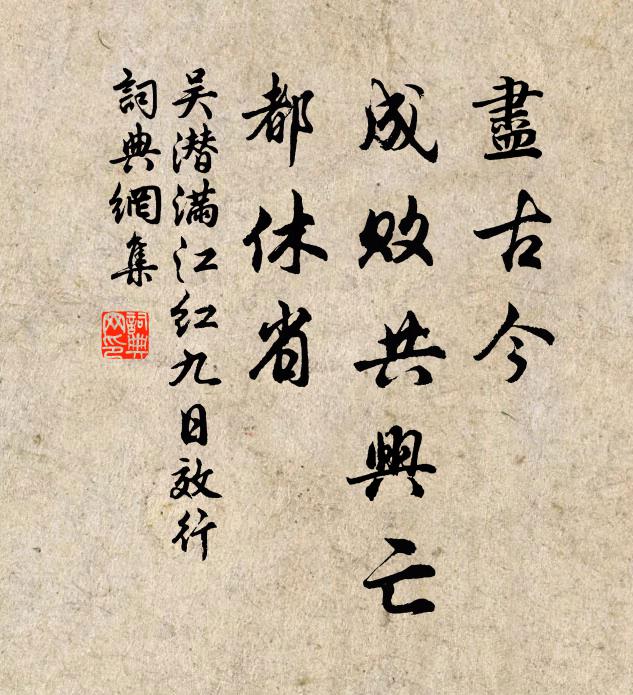 盡古今
成敗共興亡
都休省
吴潛滿江紅九日效行
詞典網集
詞典網印